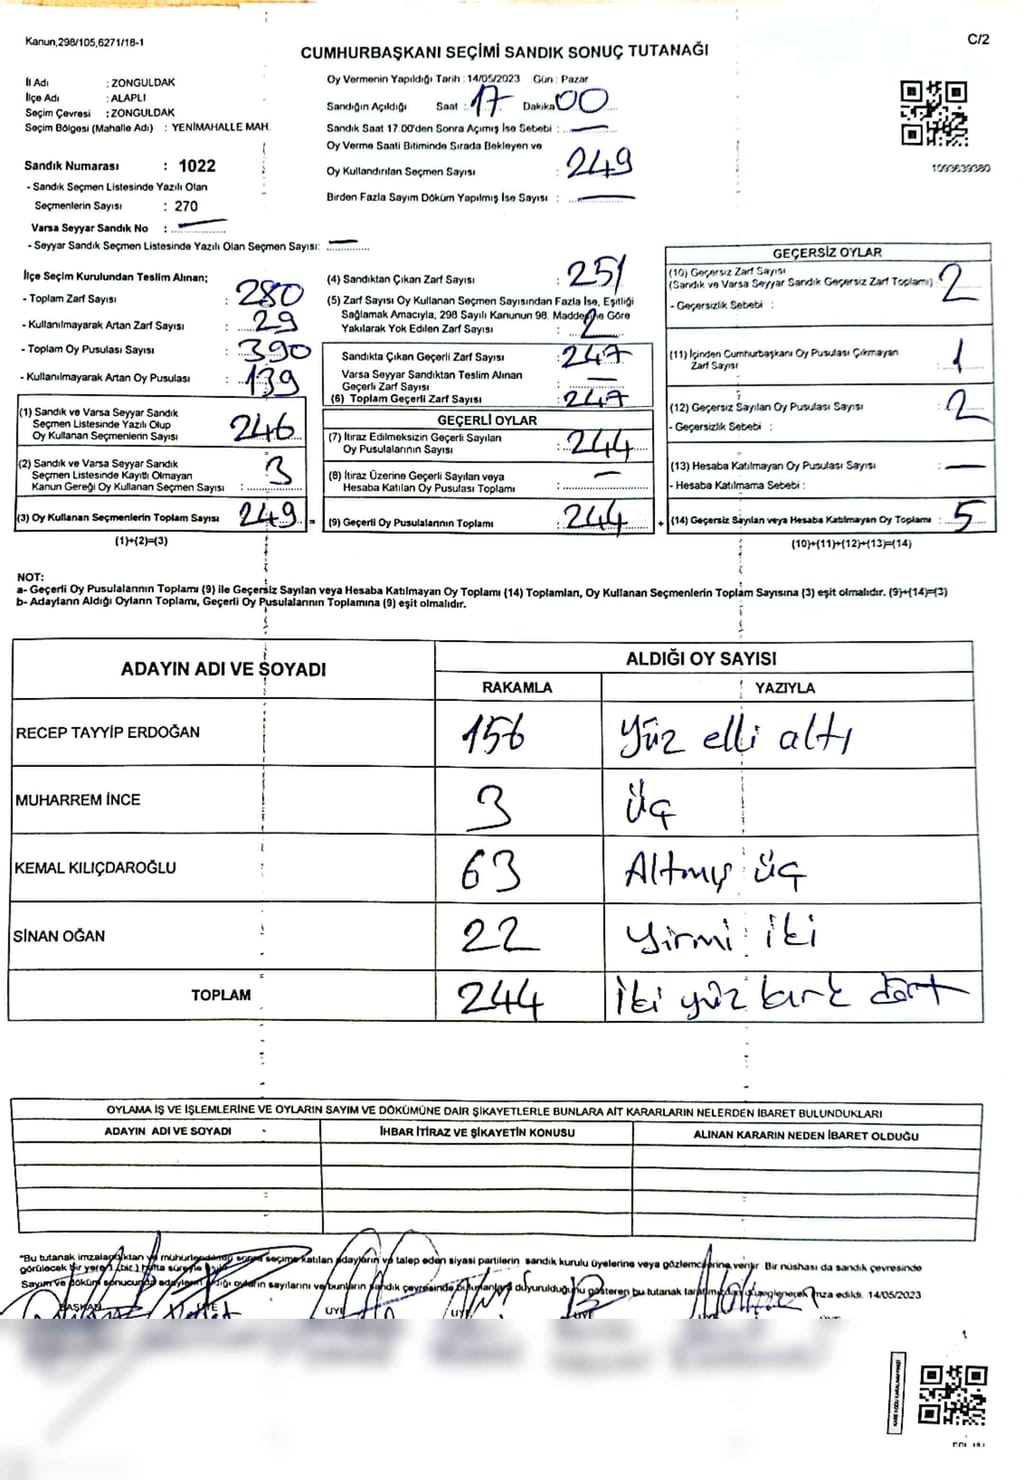 Kanun,298/105,6271/18-1
C/2
CUMHURBAŞKANI SEÇİMİ SANDIK SONUÇ TUTANAĞI
İl Adı : ZONGULDAK
İlçe Adı : ALAPLI
Seçim Çevresi : ZONGULDAK
Seçim Bölgesi (Mahalle Adı) : YENİMAHALLE MAH.
Sandık Numarası : 1022
- Sandık Seçmen Listesinde Yazılı Olan
Seçmenlerin Sayısı : 270
Varsa Seyyar Sandık No : —
- Seyyar Sandık Seçmen Listesinde Yazılı Olan Seçmen Sayısı: —
Oy Vermenin Yapıldığı Tarih : 14/05/2023 Gün : Pazar
Sandığın Açıldığı Saat : 17 Dakika 00
Sandık Saat 17.00'den Sonra Açımış İse Sebebi : —
Oy Verme Saati Bitiminde Sırada Bekleyen ve
Oy Kullandırılan Seçmen Sayısı : 249
Birden Fazla Sayım Döküm Yapılmış İse Sayısı : —
1093639380
İlçe Seçim Kurulundan Teslim Alınan;
- Toplam Zarf Sayısı : 280
- Kullanılmayarak Artan Zarf Sayısı : 29
- Toplam Oy Pusulası Sayısı : 390
- Kullanılmayarak Artan Oy Pusulası : 139
(1) Sandık ve Varsa Seyyar Sandık
Seçmen Listesinde Yazılı Olup
Oy Kullanan Seçmenlerin Sayısı 246
(2) Sandık ve Varsa Seyyar Sandık
Seçmen Listesinde Kayıtlı Olmayan
Kanun Gereği Oy Kullanan Seçmen Sayısı : 3
(3) Oy Kullanan Seçmenlerin Toplam Sayısı 249 =
(1)+(2)=(3)
(4) Sandıktan Çıkan Zarf Sayısı : 251
(5) Zarf Sayısı Oy Kullanan Seçmen Sayısından Fazla İse, Eşitliği
Sağlamak Amacıyla, 298 Sayılı Kanunun 98. Maddesine Göre
Yakılarak Yok Edilen Zarf Sayısı : 2
Sandıkta Çıkan Geçerli Zarf Sayısı : 247
Varsa Seyyar Sandıktan Teslim Alınan
Geçerli Zarf Sayısı : —
(6) Toplam Geçerli Zarf Sayısı : 247
GEÇERLİ OYLAR
(7) İtiraz Edilmeksizin Geçerli Sayılan
Oy Pusulalarının Sayısı : 244
(8) İtiraz Üzerine Geçerli Sayılan veya
Hesaba Katılan Oy Pusulası Toplamı : —
(9) Geçerli Oy Pusulalarının Toplamı : 244 +
GEÇERSİZ OYLAR
(10) Geçersiz Zarf Sayısı
(Sandık ve Varsa Seyyar Sandık Geçersiz Zarf Toplamı) : 2
- Geçersizlik Sebebi :
(11) İçinden Cumhurbaşkanı Oy Pusulası Çıkmayan
Zarf Sayısı : 1
(12) Geçersiz Sayılan Oy Pusulası Sayısı : 2
- Geçersizlik Sebebi :
(13) Hesaba Katılmayan Oy Pusulası Sayısı : —
- Hesaba Katılmama Sebebi :
(14) Geçersiz Sayılan veya Hesaba Katılmayan Oy Toplamı : 5
(10)+(11)+(12)+(13)=(14)
NOT:
a- Geçerli Oy Pusulalarının Toplamı (9) ile Geçersiz Sayılan veya Hesaba Katılmayan Oy Toplamı (14) Toplamları, Oy Kullanan Seçmenlerin Toplam Sayısına (3) eşit olmalıdır. (9)+(14)=(3)
b- Adayların Aldığı Oyların Toplamı, Geçerli Oy Pusulalarının Toplamına (9) eşit olmalıdır.
ADAYIN ADI VE SOYADI ALDIĞI OY SAYISI
RAKAMLA YAZIYLA
RECEP TAYYİP ERDOĞAN 156 Yüz elli altı
MUHARREM İNCE 3 üç
KEMAL KILIÇDAROĞLU 63 Altmış üç
SİNAN OĞAN 22 Yirmi iki
TOPLAM 244 İki yüz kırk dört
OYLAMA İŞ VE İŞLEMLERİNE VE OYLARIN SAYIM VE DÖKÜMÜNE DAİR ŞİKAYETLERLE BUNLARA AİT KARARLARIN NELERDEN İBARET BULUNDUKLARI
ADAYIN ADI VE SOYADI İHBAR İTİRAZ VE ŞİKAYETİN KONUSU ALINAN KARARIN NEDEN İBARET OLDUĞU
"Bu tutanak imzalandıktan ve mühürlendikten sonra seçime katılan adayların ve talep eden siyasi partilerin sandık kurulu üyelerine veya gözlemcilerine verilir. Bir nüshası da sandık çevresinde
görülecek bir yere 1 (bir) hafta süreyle
Sayım ve döküm sonucunda adayların aldığı oyların sayılarını ve bunların sandık çevresinde duyurulduğunu gösteren bu tutanak düzenlenerek imza edildi. 14/05/2023
BAŞKAN ÜYE ÜYE ÜYE